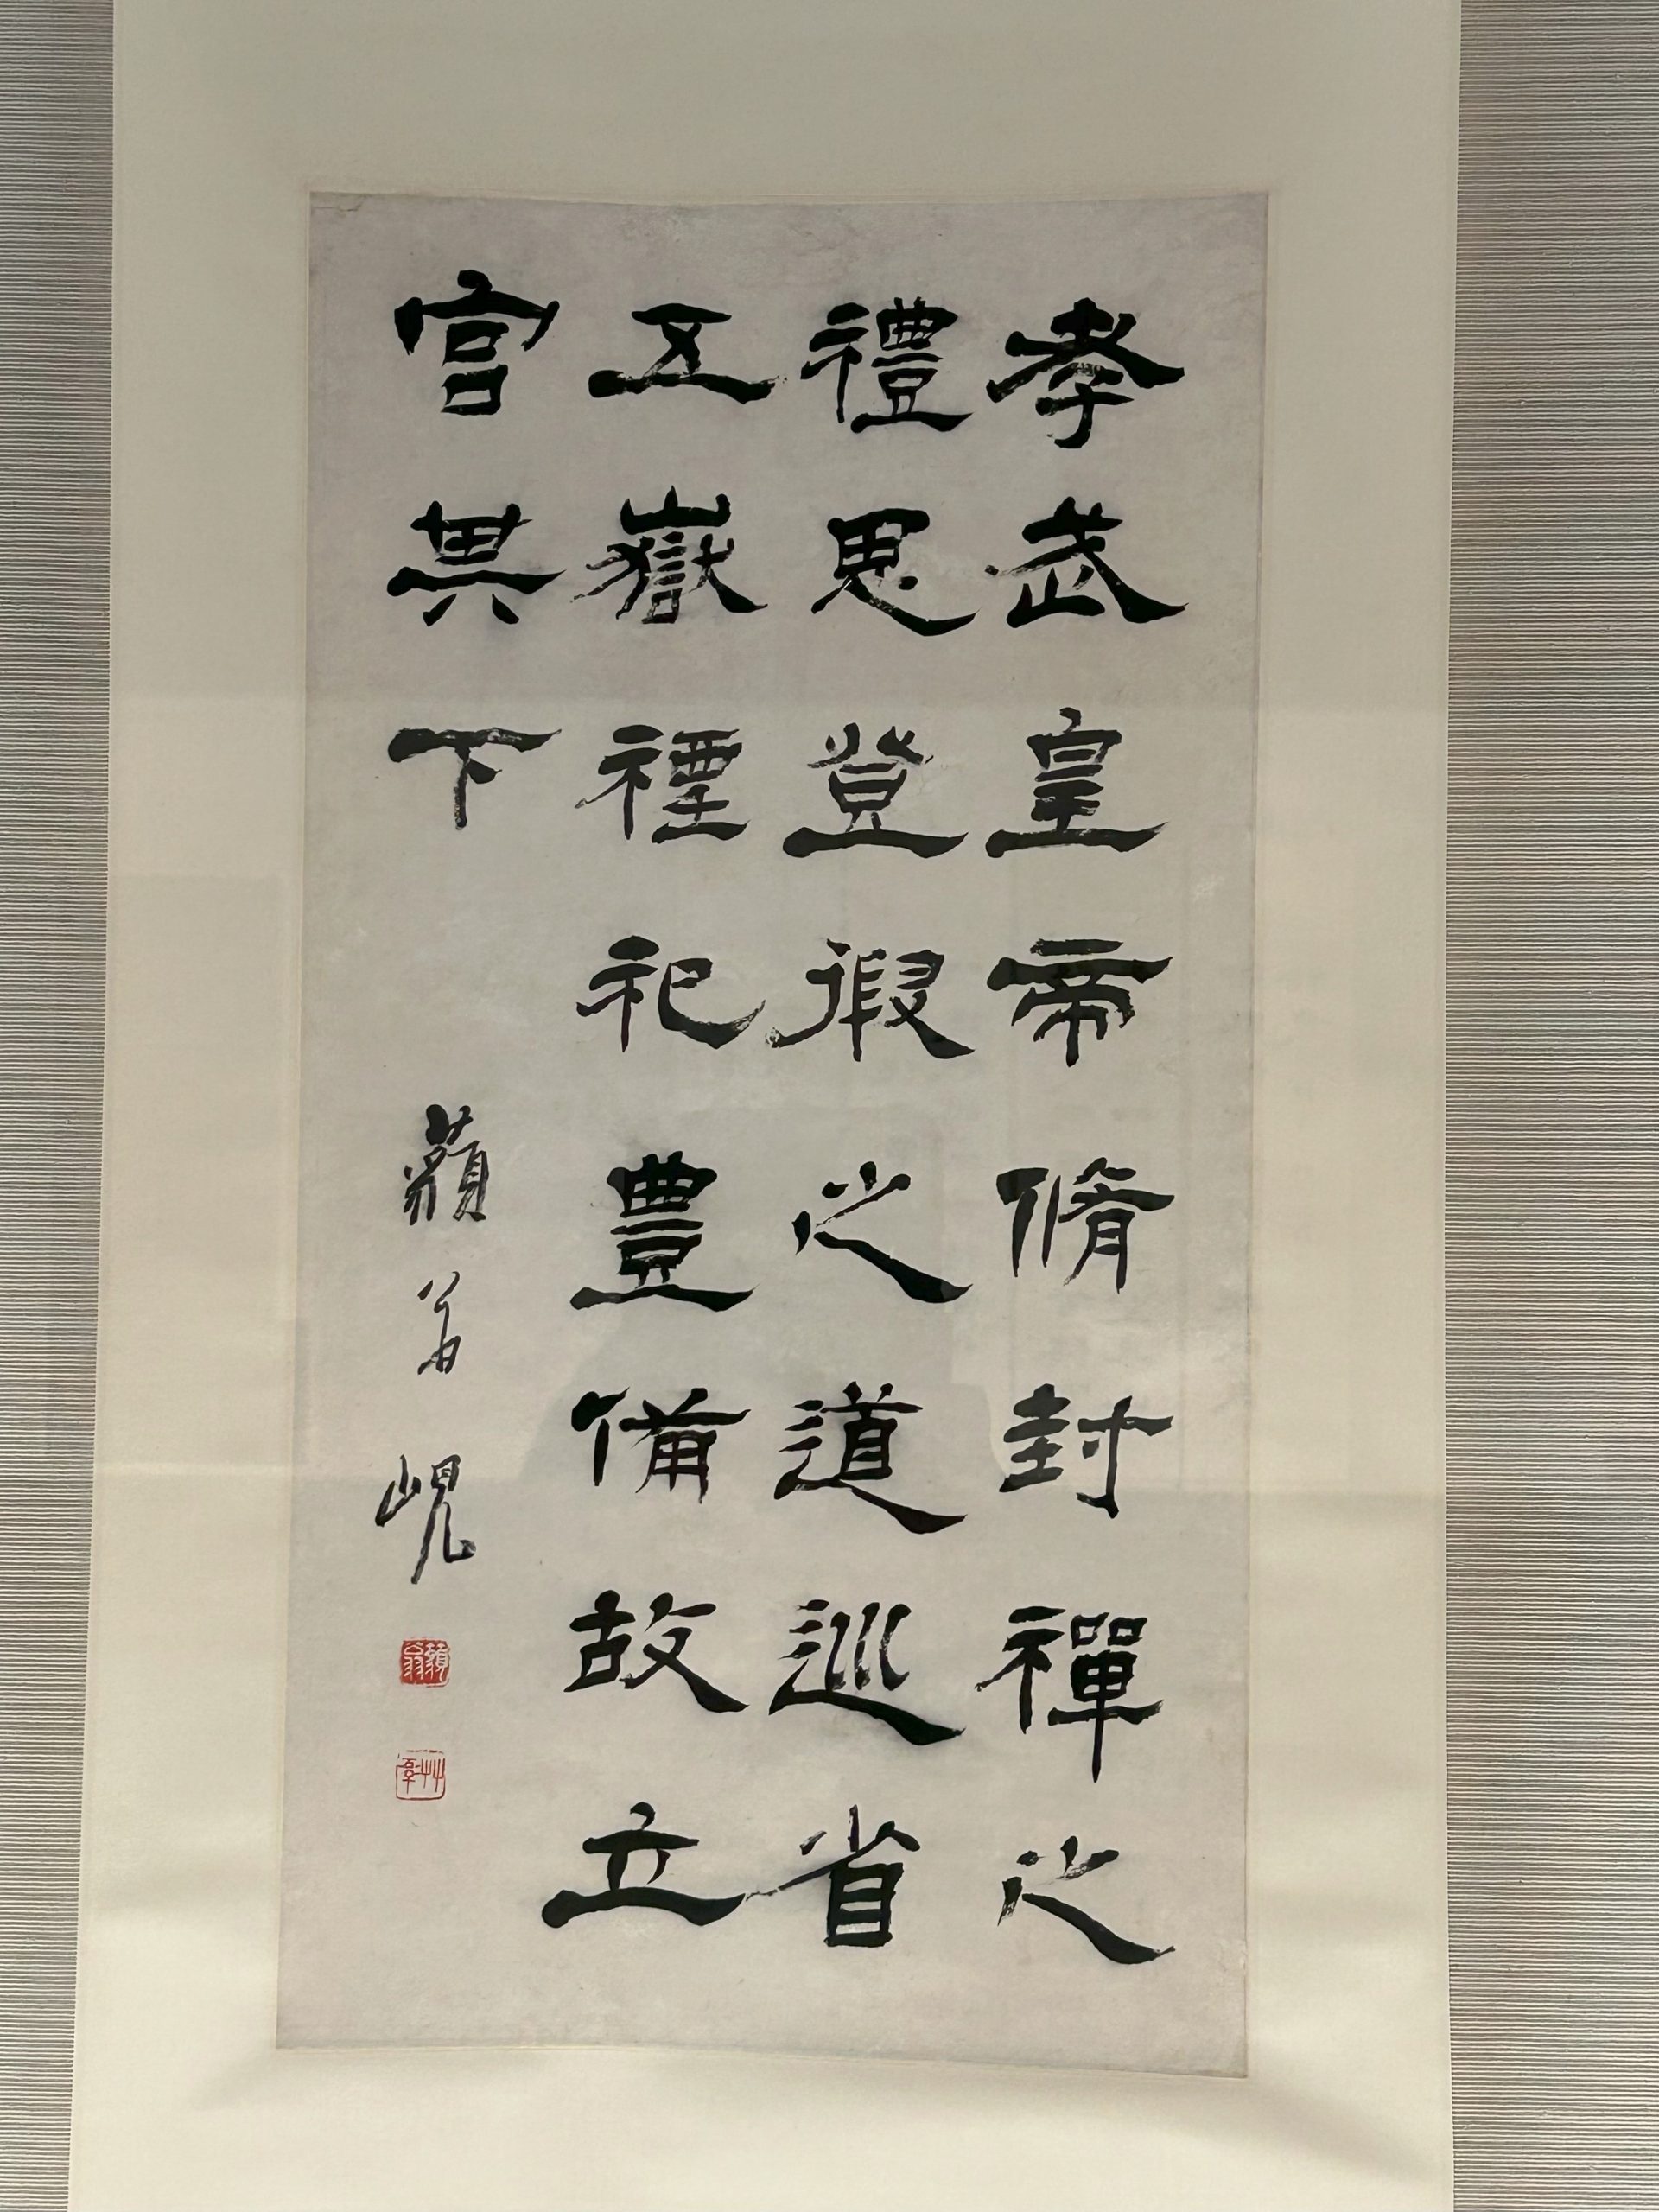 孝武皇帝脩封禪之
禮思登徦之道巡省
五嶽禋祀豊備故立
宮其下
藾翁峴
藾翁